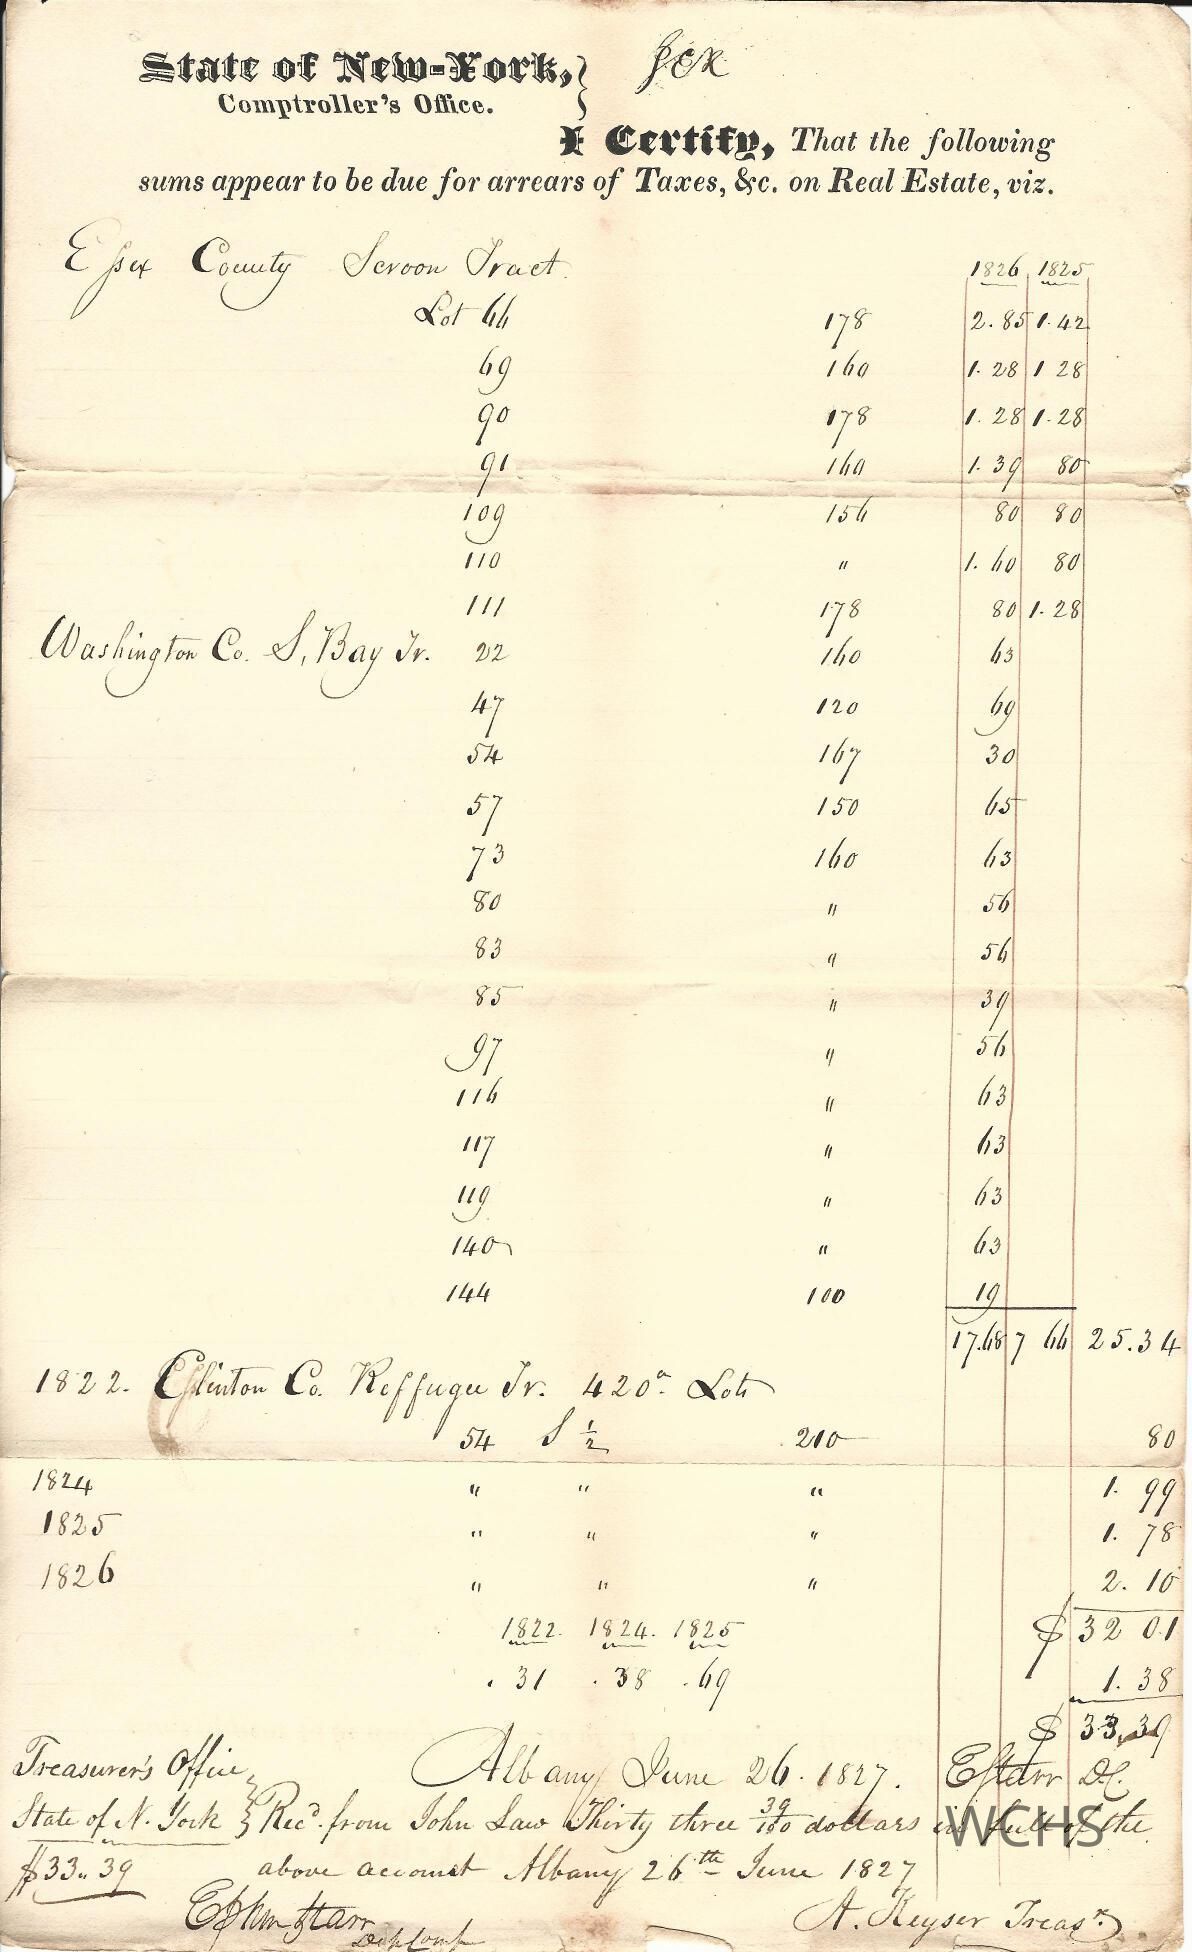 State of New-York,
Comptroller's Office.
I Certify, That the following
sums appear to be due for arrears of Taxes, &c. on Real Estate, viz.
Essex County Scroon Tract.
1826 1825
Lot 66 178 2.85 1.42
69 160 1.28 1 28
90 178 1.28 1.28
91 160 1.39 80
109 156 80 80
110 " 1.60 80
111 178 80 1.28
Washington Co. S. Bay Tr. 22 160 63
47 120 69
54 167 30
57 150 65
73 160 63
80 " 56
83 " 56
85 " 39
97 " 56
116 " 63
117 " 63
119 " 63
140 " 63
144 100 19
17.68 7 66 25.34
1822. Clinton Co. Reffugee Tr. 420a Lots
54 S ½ 210 80
1824 " " " 1. 99
1825 " " " 1. 78
1826 " " " 2. 10
1822. 1824. 1825 $ 32 01
.31 .38 .69 1. 38
$ 33.39
Treasurer's Office Albany June 26. 1827. E Starr D.C.
State of N. York } Rec'd. from John Law Thirty three 39/100 dollars in full of the
$33.. 39 above account Albany 26th June 1827
Ephm Starr A. Keyser Treasr.
Dep Comp
WCHS